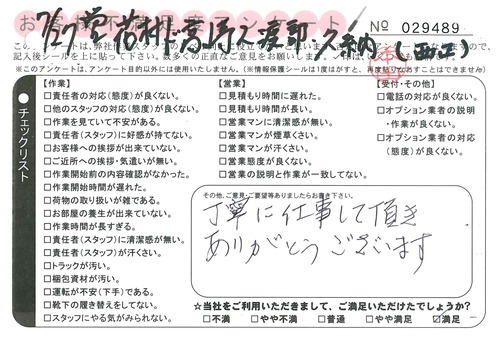 お客様アンケート
№ 029489
このアンケートは、弊社
記入後シールを上に貼って下さい。数多くの正直なご意見をお願いします。
※このアンケートは、アンケート目的以外には使用いたしません。(※情報保護シールは1度はがすと、再度貼りなおすことはできません)
チェックリスト
【作業】
□責任者の対応(態度)が良くない。
□他のスタッフの対応(態度)が良くない。
□作業を見ていて不安がある。
□責任者(スタッフ)に好感が持てない。
□お客様への挨拶が出来ていない。
□ご近所への挨拶・気遣いが無い。
□作業開始前の内容確認がなかった。
□作業開始時間が遅れた。
□荷物の取り扱いが雑である。
□お部屋の養生が出来ていない。
□作業時間が長すぎる。
□責任者(スタッフ)に清潔感が無い。
□責任者(スタッフ)が汗くさい。
□トラックが汚い。
□梱包資材が汚い。
□運転が不安(下手)である。
□靴下の履き替えをしてない。
□スタッフにやる気がみられない。
【営業】
□見積もり時間に遅れた。
□見積もり時間が長い。
□営業マンに清潔感が無い。
□営業マンが煙草くさい。
□営業マンが汗くさい。
□営業態度が良くない。
□営業の説明と作業が一致してない。
【受付・その他】
□電話の対応が良くない。
□オプション業者の説明
・作業が良くない。
□オプション業者の対応
(態度)が良くない。
その他、ご意見・ご要望等ありましたらお書き下さい。
丁寧に仕事して頂き
ありがとうございます
☆当社をご利用いただきまして、ご満足いただけたでしょうか?
□不満 □やや不満 □普通 □やや満足 ☑満足